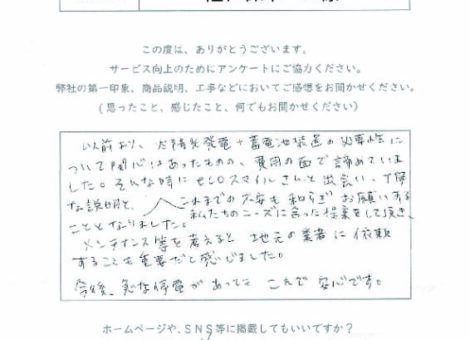 この度は、ありがとうございます。
サービス向上のためにアンケートにご協力ください。
弊社の第一印象、商品説明、工事などにおいてご感想をお聞かせください。
(思ったこと、感じたこと、何でもお聞かせください)
以前より、太陽光発電+蓄電池装置の必要性に
ついて関心はあったものの、費用の面で諦めていま
した。そんな時にゼロスマイルさんと出会い、丁寧
な説明と、これまでの不安も和らぎお願いする
私たちのニーズに合った提案をして頂き、
こととなりました。
メンテナンス等を考えると地元の業者に依頼
することも重要だと感じました。
今後、急な停電があっても これで安心です。
ホームページや、SNS等に掲載してもいいですか?